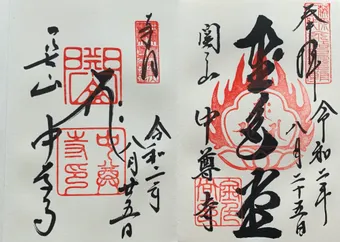 奉拝
令和二年
八月二十五日
金色堂
関山 中尊寺
令和二年
八月廿五日
中尊寺印
関山 中尊寺